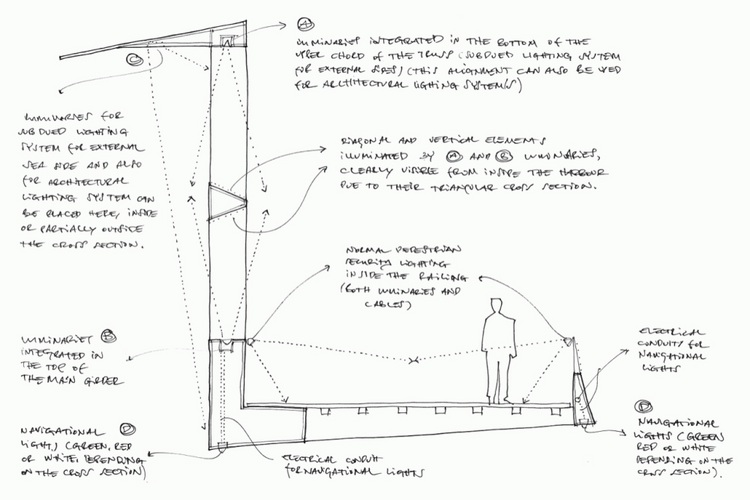 A
LUMINARIES INTEGRATED IN THE BOTTOM OF THE
UPPER CHORD OF THE TRUSS (SUBDUED LIGHTING SYSTEM
FOR EXTERNAL SIDES) (THIS ALIGNMENT CAN ALSO BE USED
FOR ARCHITECTURAL LIGHTING SYSTEM/S)
C
LUMINARIES FOR
SUBDUED LIGHTING
SYSTEM FOR EXTERNAL
SEA SIDE AND ALSO
FOR ARCHITECTURAL
LIGHTING SYSTEM CAN
BE PLACED HERE, INSIDE
OR PARTIALLY OUTSIDE
THE CROSS SECTION.
DIAGONAL AND VERTICAL ELEMENTS
ILLUMINATED BY A AND B LUMINARIES,
CLEARLY VISIBLE FROM INSIDE THE HARBOUR
DUE TO THEIR TRIANGULAR CROSS SECTION.
NORMAL PEDESTRIAN
SECURITY LIGHTING
INSIDE THE RAILING
(BOTH LUMINARIES AND
CABLES)
LUMINARIES B
INTEGRATED IN
THE TOP OF
THE MAIN GIRDER
ELECTRICAL
CONDUITS FOR
NAVIGATIONAL
LIGHTS
D
NAVIGATIONAL
LIGHTS (GREEN, RED
OR WHITE, DEPENDING
ON THE CROSS SECTION)
ELECTRICAL CONDUIT
FOR NAVIGATIONAL LIGHTS
D
NAVIGATIONAL
LIGHTS (GREEN
RED OR WHITE
DEPENDING ON THE
CROSS SECTION).